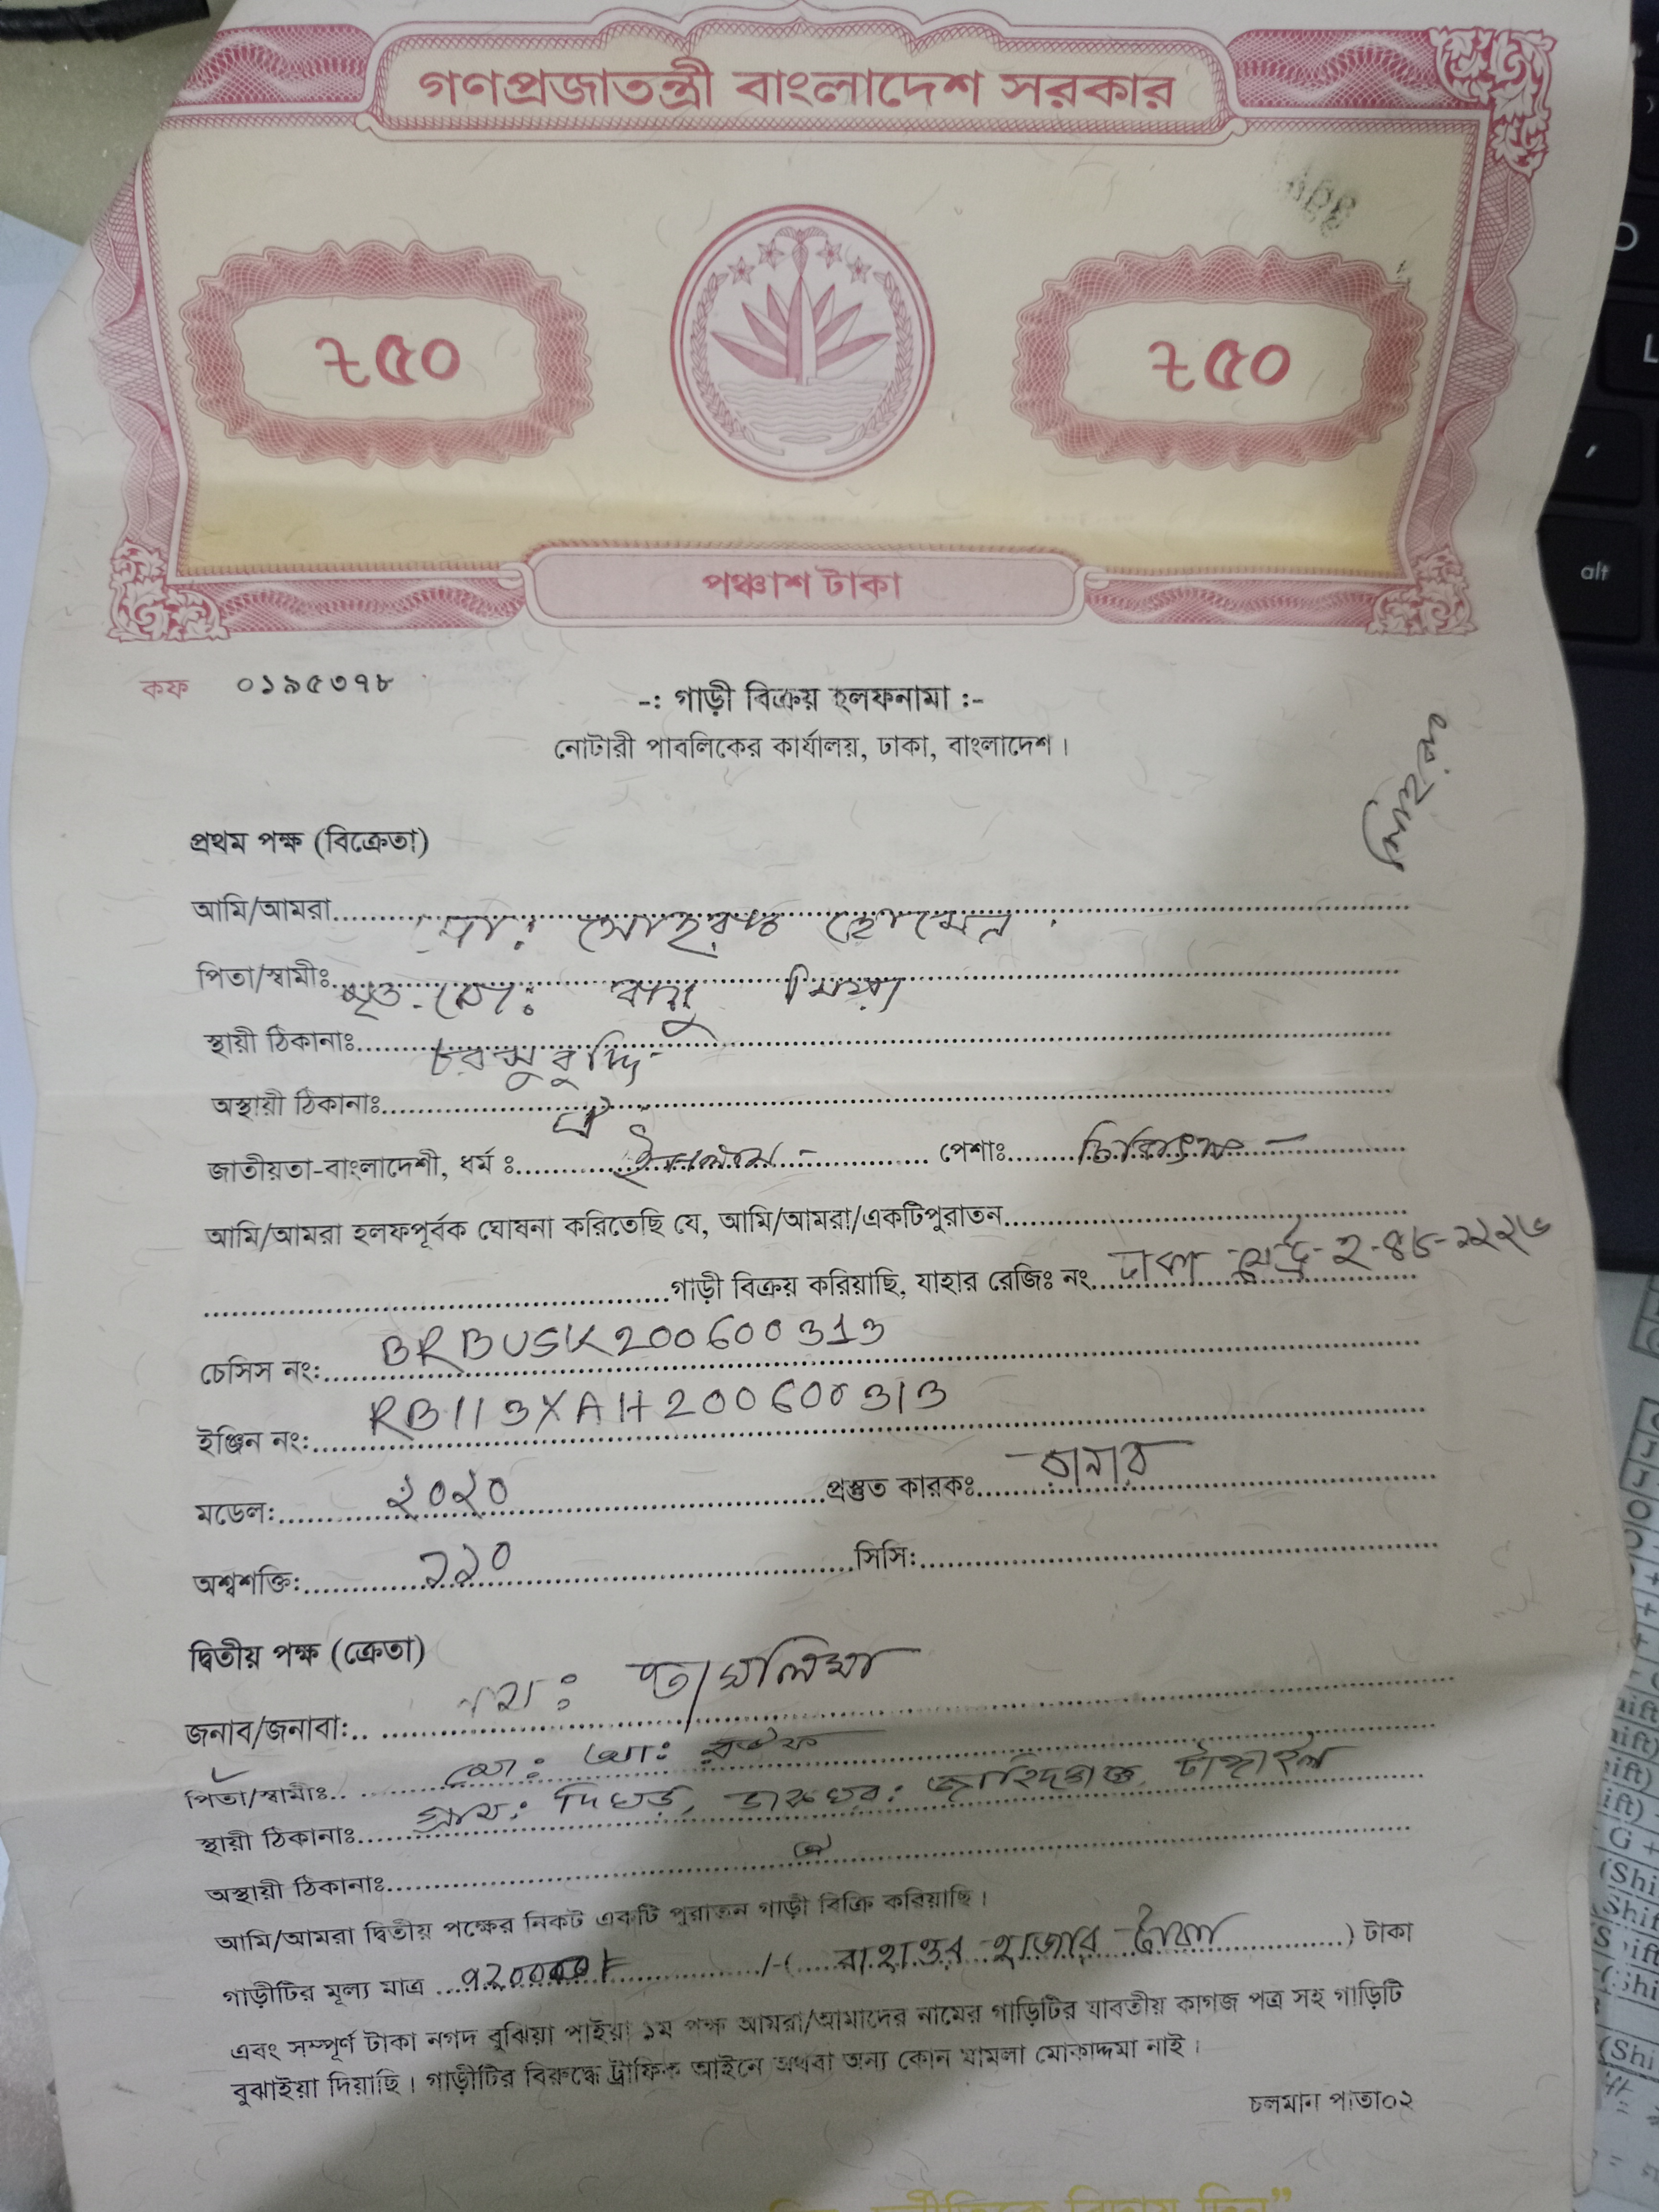 গণপ্রজাতন্ত্রী বাংলাদেশ সরকার
৳৫০ ৳৫০
পঞ্চাশ টাকা
কফ ০১৯৫৩৭৮
-: গাড়ী বিক্রয় হলফনামা :-
নোটারী পাবলিকের কার্যালয়, ঢাকা, বাংলাদেশ।
প্রথম পক্ষ (বিক্রেতা)
আমি/আমরা.......... মো: সোহরাফ হোসেন
পিতা/স্বামীঃ.......... মৃত. মো: মিয়া
স্থায়ী ঠিকানাঃ..........
অস্থায়ী ঠিকানাঃ.......... ঐ
জাতীয়তা-বাংলাদেশী, ধর্ম ঃ.......... ইসলাম - .......... পেশাঃ..........
আমি/আমরা হলফপূর্বক ঘোষনা করিতেছি যে, আমি/আমরা/একটিপুরাতন..........
..........গাড়ী বিক্রয় করিয়াছি, যাহার রেজিঃ নং.......... ঢাকা মেট্রো-হ-
চেসিস নং:.......... BRBUSK200600313
ইঞ্জিন নং:.......... RB113XAH200600313
মডেল:.......... ২০২০ ..........প্রস্তুত কারকঃ.......... রানার
অশ্বশক্তি:.......... ১১০ ..........সিসি:..........
দ্বিতীয় পক্ষ (ক্রেতা)
জনাব/জনাবা:.. ..........
পিতা/স্বামীঃ.. .......... মো: মো: রউফ
স্থায়ী ঠিকানাঃ.......... গ্রাম: দিঘড়, ডাকঘর: টাঙ্গাইল
অস্থায়ী ঠিকানাঃ.......... ঐ
আমি/আমরা দ্বিতীয় পক্ষের নিকট একটি পুরাতন গাড়ী বিক্রি করিয়াছি।
গাড়ীটির মূল্য মাত্র .......... ৭২০০০/- ........../-(.......... বাহাত্তর হাজার টাকা ..........) টাকা
এবং সম্পূর্ণ টাকা নগদ বুঝিয়া পাইয়া ১ম পক্ষ আমরা/আমাদের নামের গাড়িটির যাবতীয় কাগজ পত্র সহ গাড়িটি
বুঝাইয়া দিয়াছি। গাড়ীটির বিরুদ্ধে ট্রাফিক আইনে অথবা অন্য কোন মামলা মোকাদ্দমা নাই।
চলমান পাতা০২